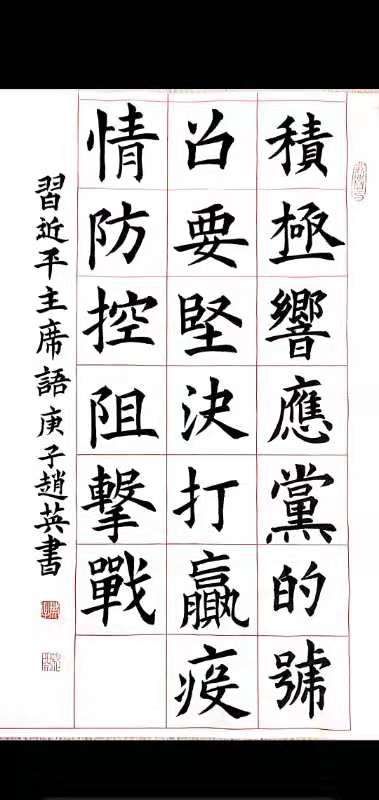 積極響應黨的號
召要堅決打贏疫
情防控阻擊戰
習近平主席語庚子趙英書